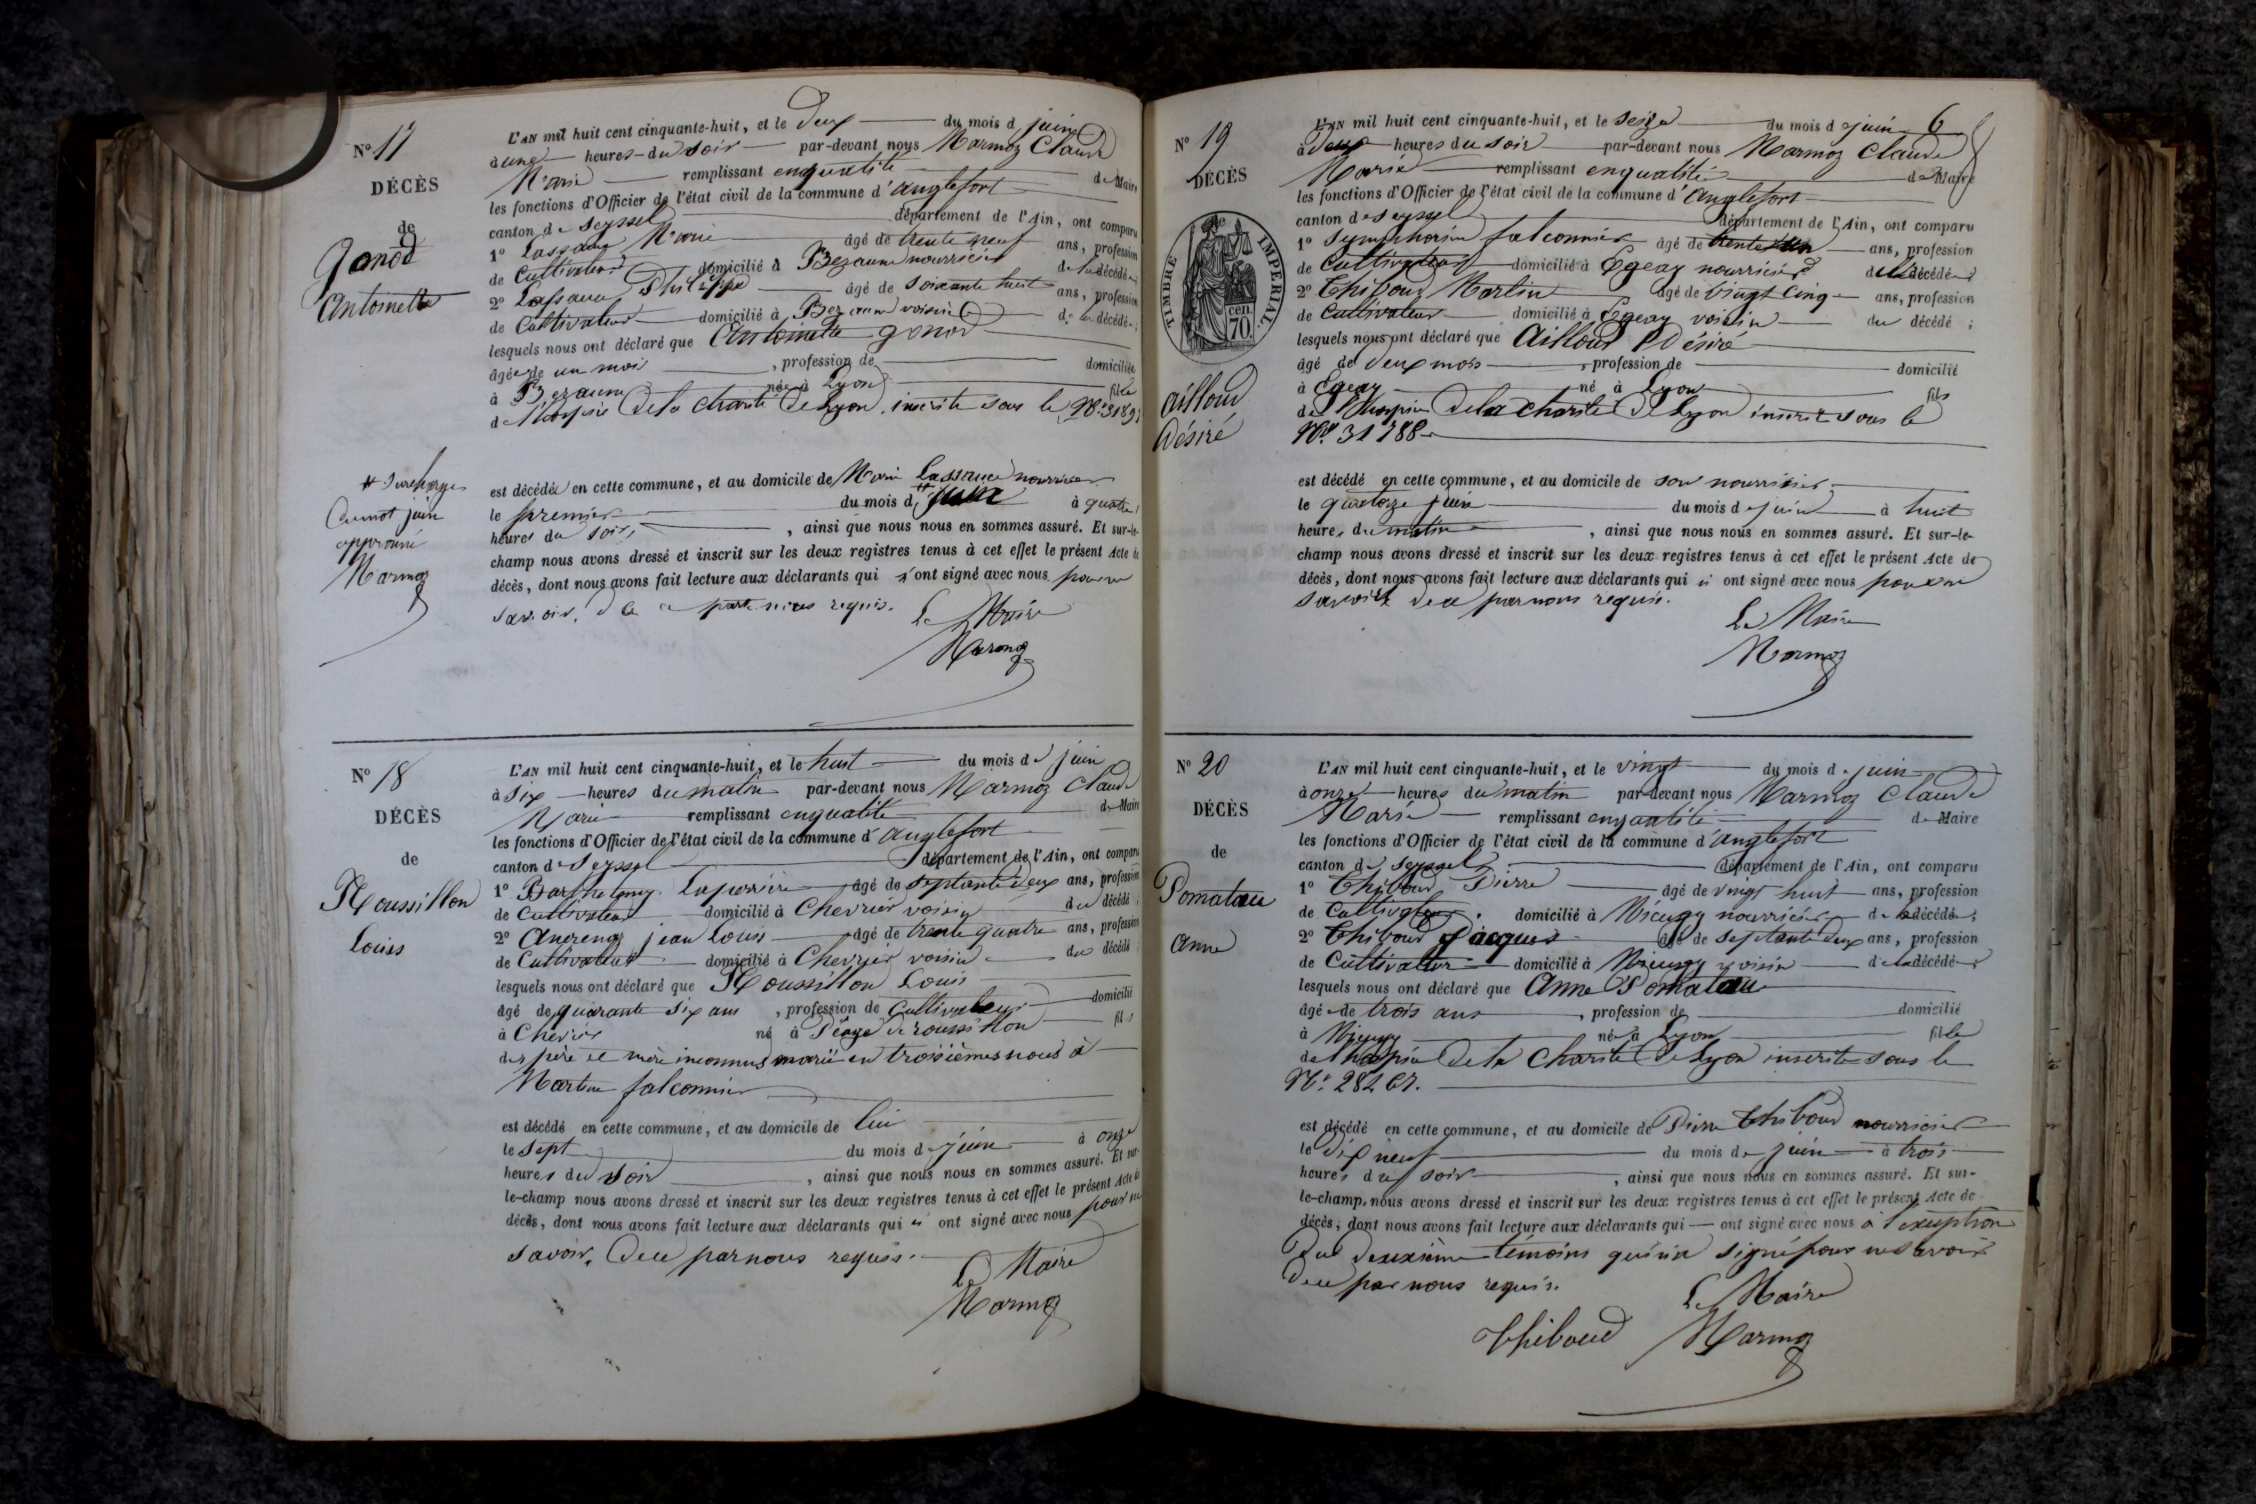 N° 17
DÉCÈS
de
Gonod
Antoinette
L'AN mil huit cent cinquante-huit, et le deux du mois de juin
à une heures du soir par-devant nous Marmoz Claude
Marie remplissant en qualité de Maire
les fonctions d'Officier de l'état civil de la commune d'anglefort
canton de Seyssel département de l'Ain, ont comparu
1° Marie âgé de trente neuf ans, profession
de Cultivateur domicilié à nourricier de la décédée;
2° Philippe âgé de soixante huit ans, profession
de Cultivateur domicilié à voisin de la décédée;
lesquels nous ont déclaré que Antoinette gonod
âgée de un mois , profession de domiciliée
à née à Lyon fille
de l'hospice de la charité de Lyon inscrite sous le N°
est décédée en cette commune, et au domicile de Marie nourricier
le premier du mois de # juin à quatre
heures du soir, , ainsi que nous nous en sommes assuré. Et sur-le-
champ nous avons dressé et inscrit sur les deux registres tenus à cet effet le présent Acte de
décès, dont nous avons fait lecture aux déclarants qui n'ont signé avec nous pour ne
savoir, de ce par nous requis.
Le Maire
Marmoz
# Surcharge
du mot juin
approuvé
Marmoz
N° 18
DÉCÈS
de
Roussillon
Louis
L'AN mil huit cent cinquante-huit, et le huit du mois de juin
à six heures du matin par-devant nous Marmoz Claude
Marie remplissant en qualité de Maire
les fonctions d'Officier de l'état civil de la commune d'anglefort
canton de Seyssel département de l'Ain, ont comparu
1° Barthelemy âgé de septante deux ans, profession
de Cultivateur domicilié à Chevrier voisin du décédé;
2° jean Louis âgé de trente quatre ans, profession
de Cultivateur domicilié à Chevrier voisin du décédé
lesquels nous ont déclaré que Roussillon Louis
âgé de quarante six ans , profession de Cultivateur domicilié
à Chevrier né à Péage de roussillon fils
des père et mère inconnus marié en troisièmes nous à
Martine falconnier
est décédé en cette commune, et au domicile de lui
le sept du mois de juin à onze
heures du soir , ainsi que nous nous en sommes assuré. Et sur-
le-champ nous avons dressé et inscrit sur les deux registres tenus à cet effet le présent Acte de
décès, dont nous avons fait lecture aux déclarants qui n'ont signé avec nous pour ne
savoir, de ce par nous requis.
Le Maire
Marmoz
6
N° 19
DÉCÈS
de
TIMBRE IMPERIAL
70 cen.
ailloud
Désiré
L'AN mil huit cent cinquante-huit, et le seize du mois de juin
à deux heures du soir par-devant nous Marmoz Claude
Marie remplissant en qualité de Maire
les fonctions d'Officier de l'état civil de la commune d'anglefort
canton de seyssel département de l'Ain, ont comparu
1° Symphorien falconnier âgé de trente ans, profession
de Cultivateur domicilié à Egeay nourricier du décédé;
2° Thiboud Martin âgé de vingt cinq ans, profession
de Cultivateur domicilié à Egeay voisin du décédé;
lesquels nous ont déclaré que Ailloud Désiré
âgé de deux mois , profession de domicilié
à Egeay né à Lyon fils
de l'hospice de la charité de Lyon inscrit sous le
N° 31788
est décédé en cette commune, et au domicile de son nourricier
le quatorze juin du mois de juin à huit
heures du matin , ainsi que nous nous en sommes assuré. Et sur-le-
champ nous avons dressé et inscrit sur les deux registres tenus à cet effet le présent Acte de
décès, dont nous avons fait lecture aux déclarants qui n'ont signé avec nous pour ne
savoir de ce par nous requis.
Le Maire
Marmoz
N° 20
DÉCÈS
de
Pomatau
Anne
L'AN mil huit cent cinquante-huit, et le vingt du mois de juin
à onze heures du matin par-devant nous Marmoz Claude
Marie remplissant en qualité de Maire
les fonctions d'Officier de l'état civil de la commune d'anglefort
canton de Seyssel département de l'Ain, ont comparu
1° Thiboud Pierre âgé de vingt huit ans, profession
de Cultivateur domicilié à nourricier de la décédée;
2° Thiboud Jacques âgé de septante deux ans, profession
de Cultivateur domicilié à voisin de la décédée
lesquels nous ont déclaré que Anne Pomatau
âgé de trois ans , profession de domicilié
à né à Lyon fille
de l'hospice de la charité de Lyon inscrite sous le
N° 28267.
est décédé en cette commune, et au domicile de Pierre Thiboud nourricier
le dix neuf du mois de juin à trois
heures du soir , ainsi que nous nous en sommes assuré. Et sur-
le-champ, nous avons dressé et inscrit sur les deux registres tenus à cet effet le présent Acte de
décès, dont nous avons fait lecture aux déclarants qui — ont signé avec nous à l'exception
du deuxième témoins qui n'a signé pour ne savoir
de ce par nous requis.
Le Maire
Thiboud Marmoz